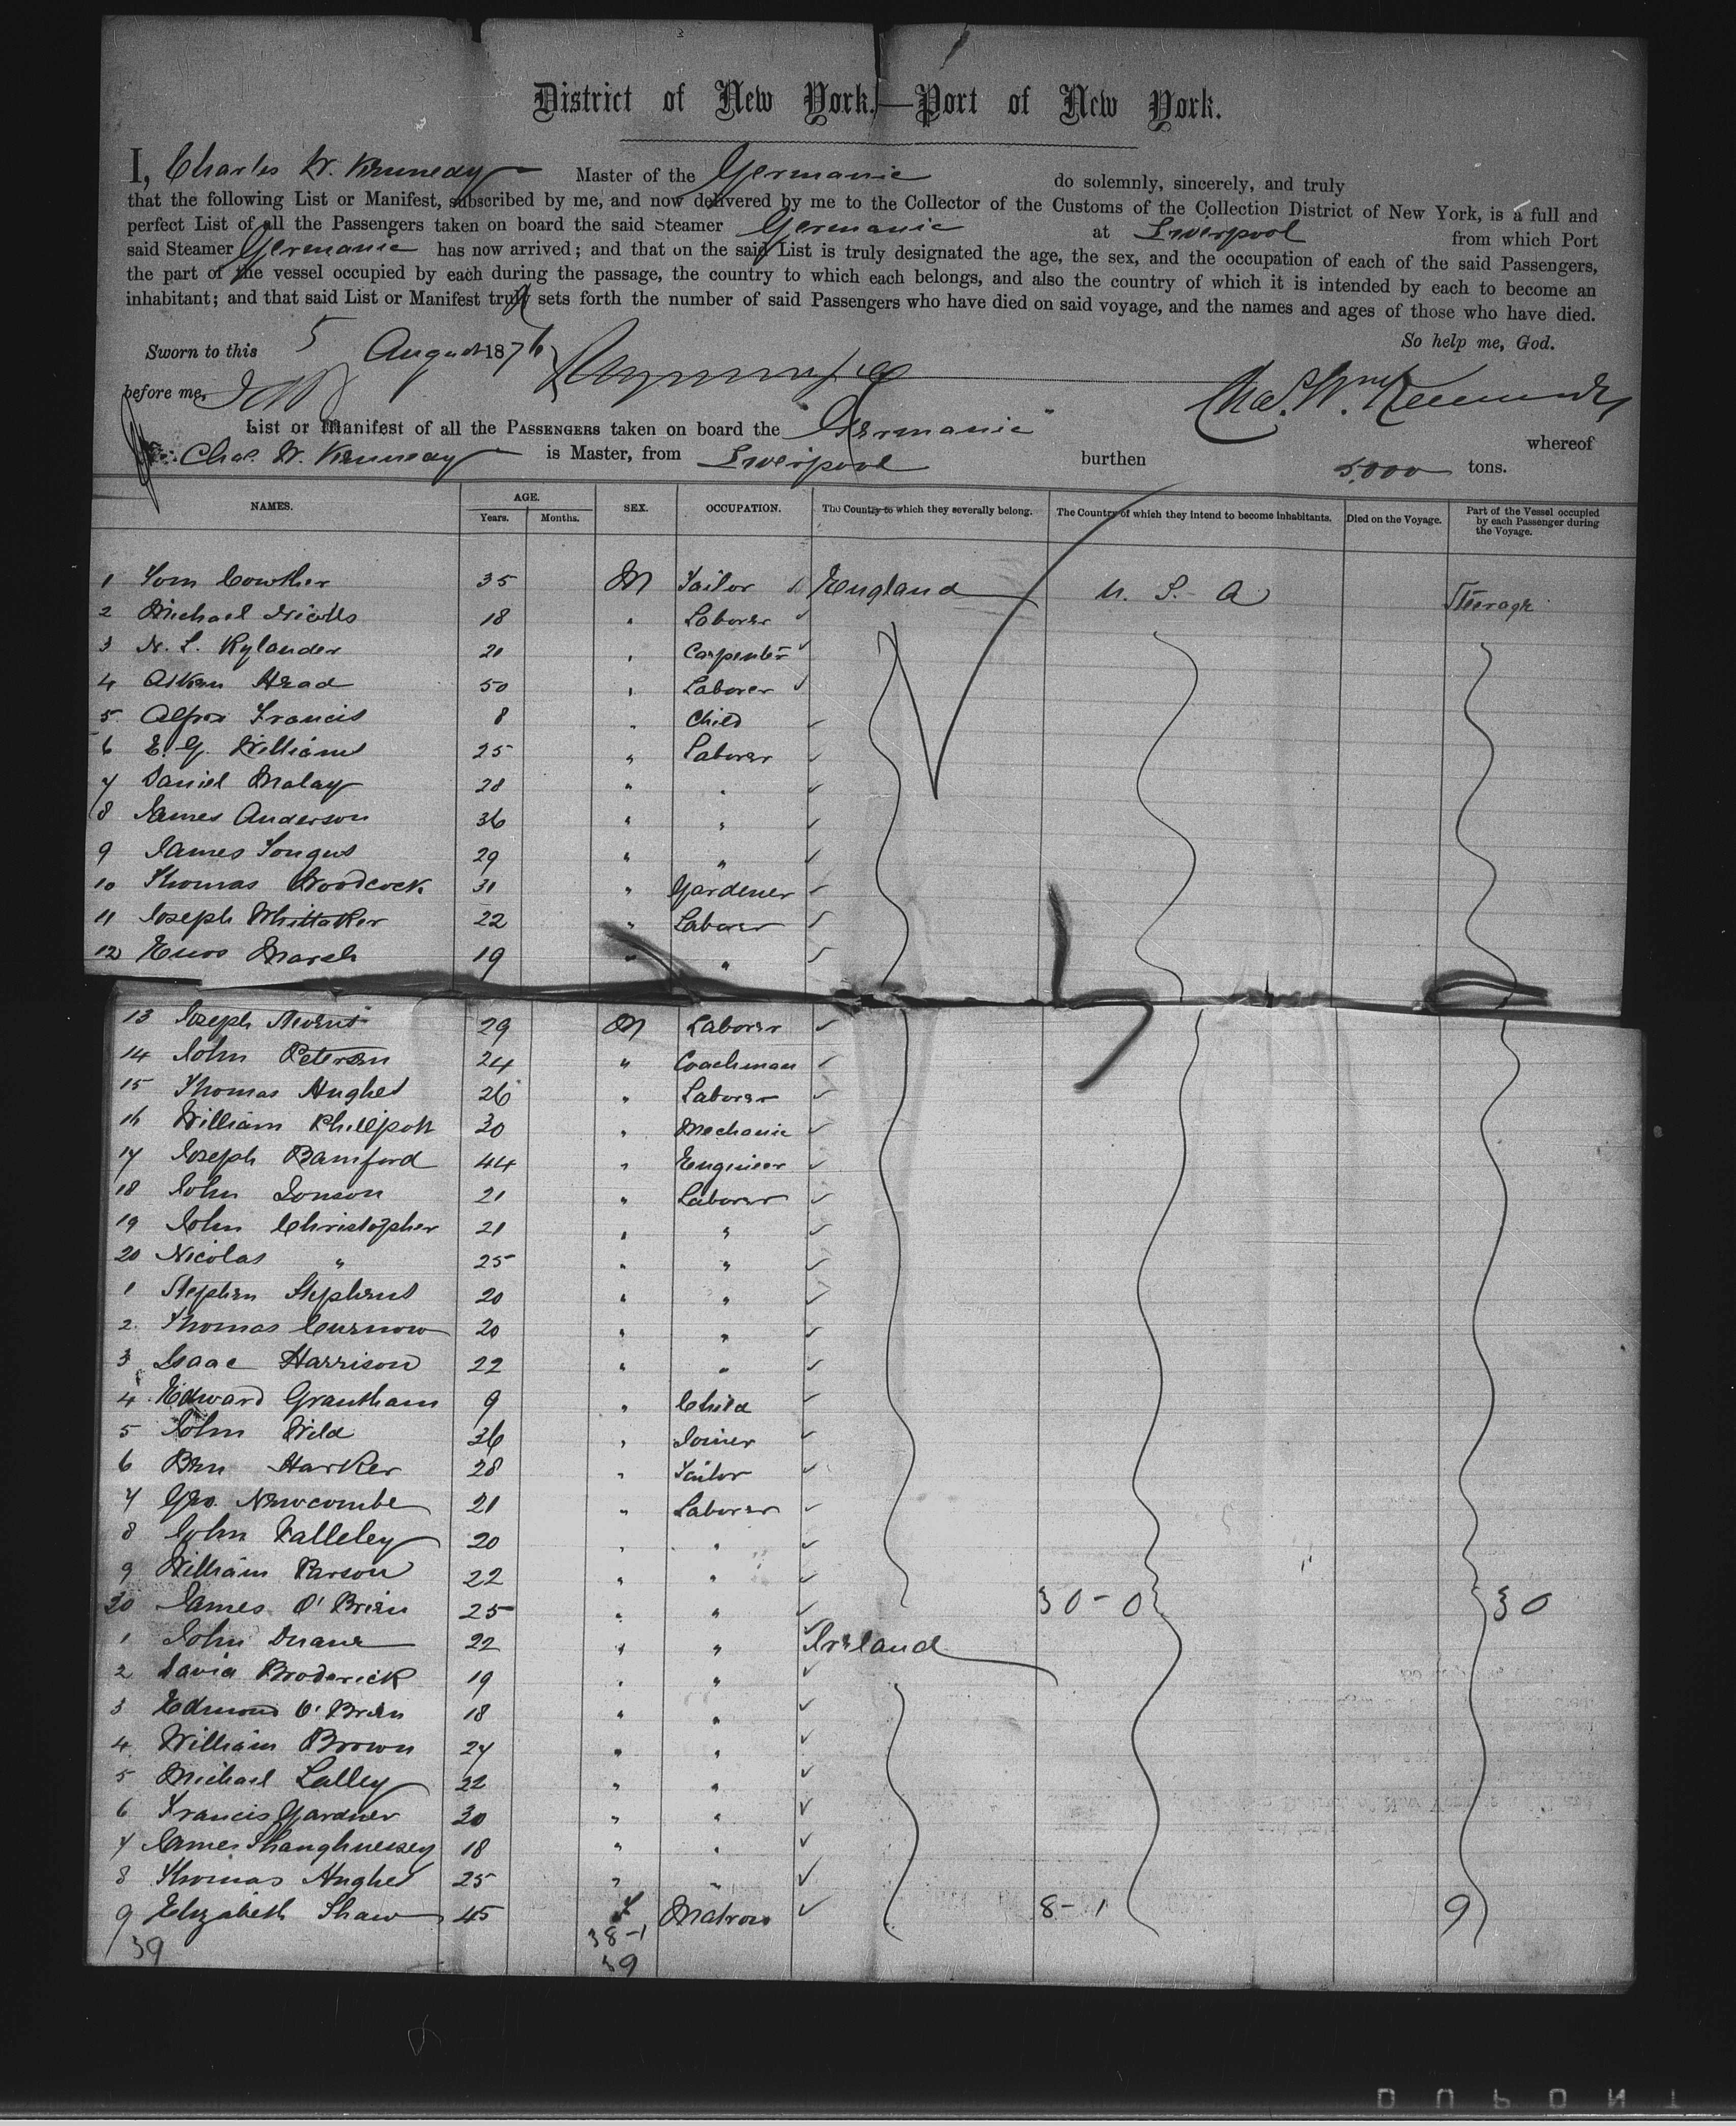 District of New York.—Port of New York.
I, Charles W. Kennedy Master of the Germanic do solemnly, sincerely, and truly
that the following List or Manifest, subscribed by me, and now delivered by me to the Collector of the Customs of the Collection District of New York, is a full and
perfect List of all the Passengers taken on board the said Steamer Germanic at Liverpool from which Port
said Steamer Germanic has now arrived; and that on the said List is truly designated the age, the sex, and the occupation of each of the said Passengers,
the part of the vessel occupied by each during the passage, the country to which each belongs, and also the country of which it is intended by each to become an
inhabitant; and that said List or Manifest truly sets forth the number of said Passengers who have died on said voyage, and the names and ages of those who have died.
So help me, God.
Sworn to this 5 August 1876
before me, Chas. Wm. Kennedy
List or Manifest of all the PASSENGERS taken on board the Germanic whereof
Chas. W. Kennedy is Master, from Liverpool burthen 5,000 tons.
NAMES. AGE. Years. Months. SEX. OCCUPATION. The Country to which they severally belong. The Country of which they intend to become inhabitants. Died on the Voyage. Part of the Vessel occupied by each Passenger during the Voyage.
1 Tom Cowther 35 M Tailor England U. S. A Steerage
2 Michael Nicolls 18 " Laborer
3 N. L. Rylander 21 " Carpenter
4 Head 50 " Laborer
5 Francis 8 " Child
6 E. G. Williams 25 " Laborer
7 Daniel Malay 28 " "
8 James Anderson 36 " "
9 James 29 " "
10 Thomas Woodcock 31 " Gardener
11 Joseph Whittaker 22 " Laborer
12 Enos Marsh 19 " "
13 Joseph 29 M Laborer
14 John Petersen 24 " Coachman
15 Thomas Hughes 26 " Laborer
16 William Phillpott 30 " Mechanic
17 Joseph Bamford 44 " Engineer
18 John Jonson 21 " Laborer
19 John Christopher 21 " "
20 Nicolas " 25 " "
1 Stephen Stephens 20 " "
2 Thomas Curnow 20 " "
3 Isaac Harrison 22 " "
4 Edward Grantham 9 " Child
5 John Wild 36 " Joiner
6 Ben Harker 28 " Tailor
7 Geo. Newcombe 21 " Laborer
8 John 20 " "
9 William Parson 22 " "
30 James O'Brien 25 " " 30-0 30
1 John Duane 22 " " Ireland
2 David Broderick 19 " "
3 Edmond O'Brien 18 " "
4 William Brown 24 " "
5 Michael Lalley 22 " "
6 Francis Gardner 30 " "
7 James Shaughnessey 18 " "
8 Thomas Hughes 25 " "
9 Elizabeth Shaw 45 F Matron 8-1 9
39 38-1
39
DUPONT